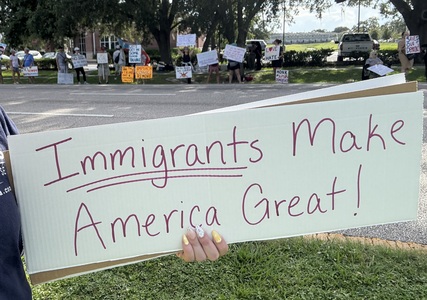 Immigrants Make
America Great!